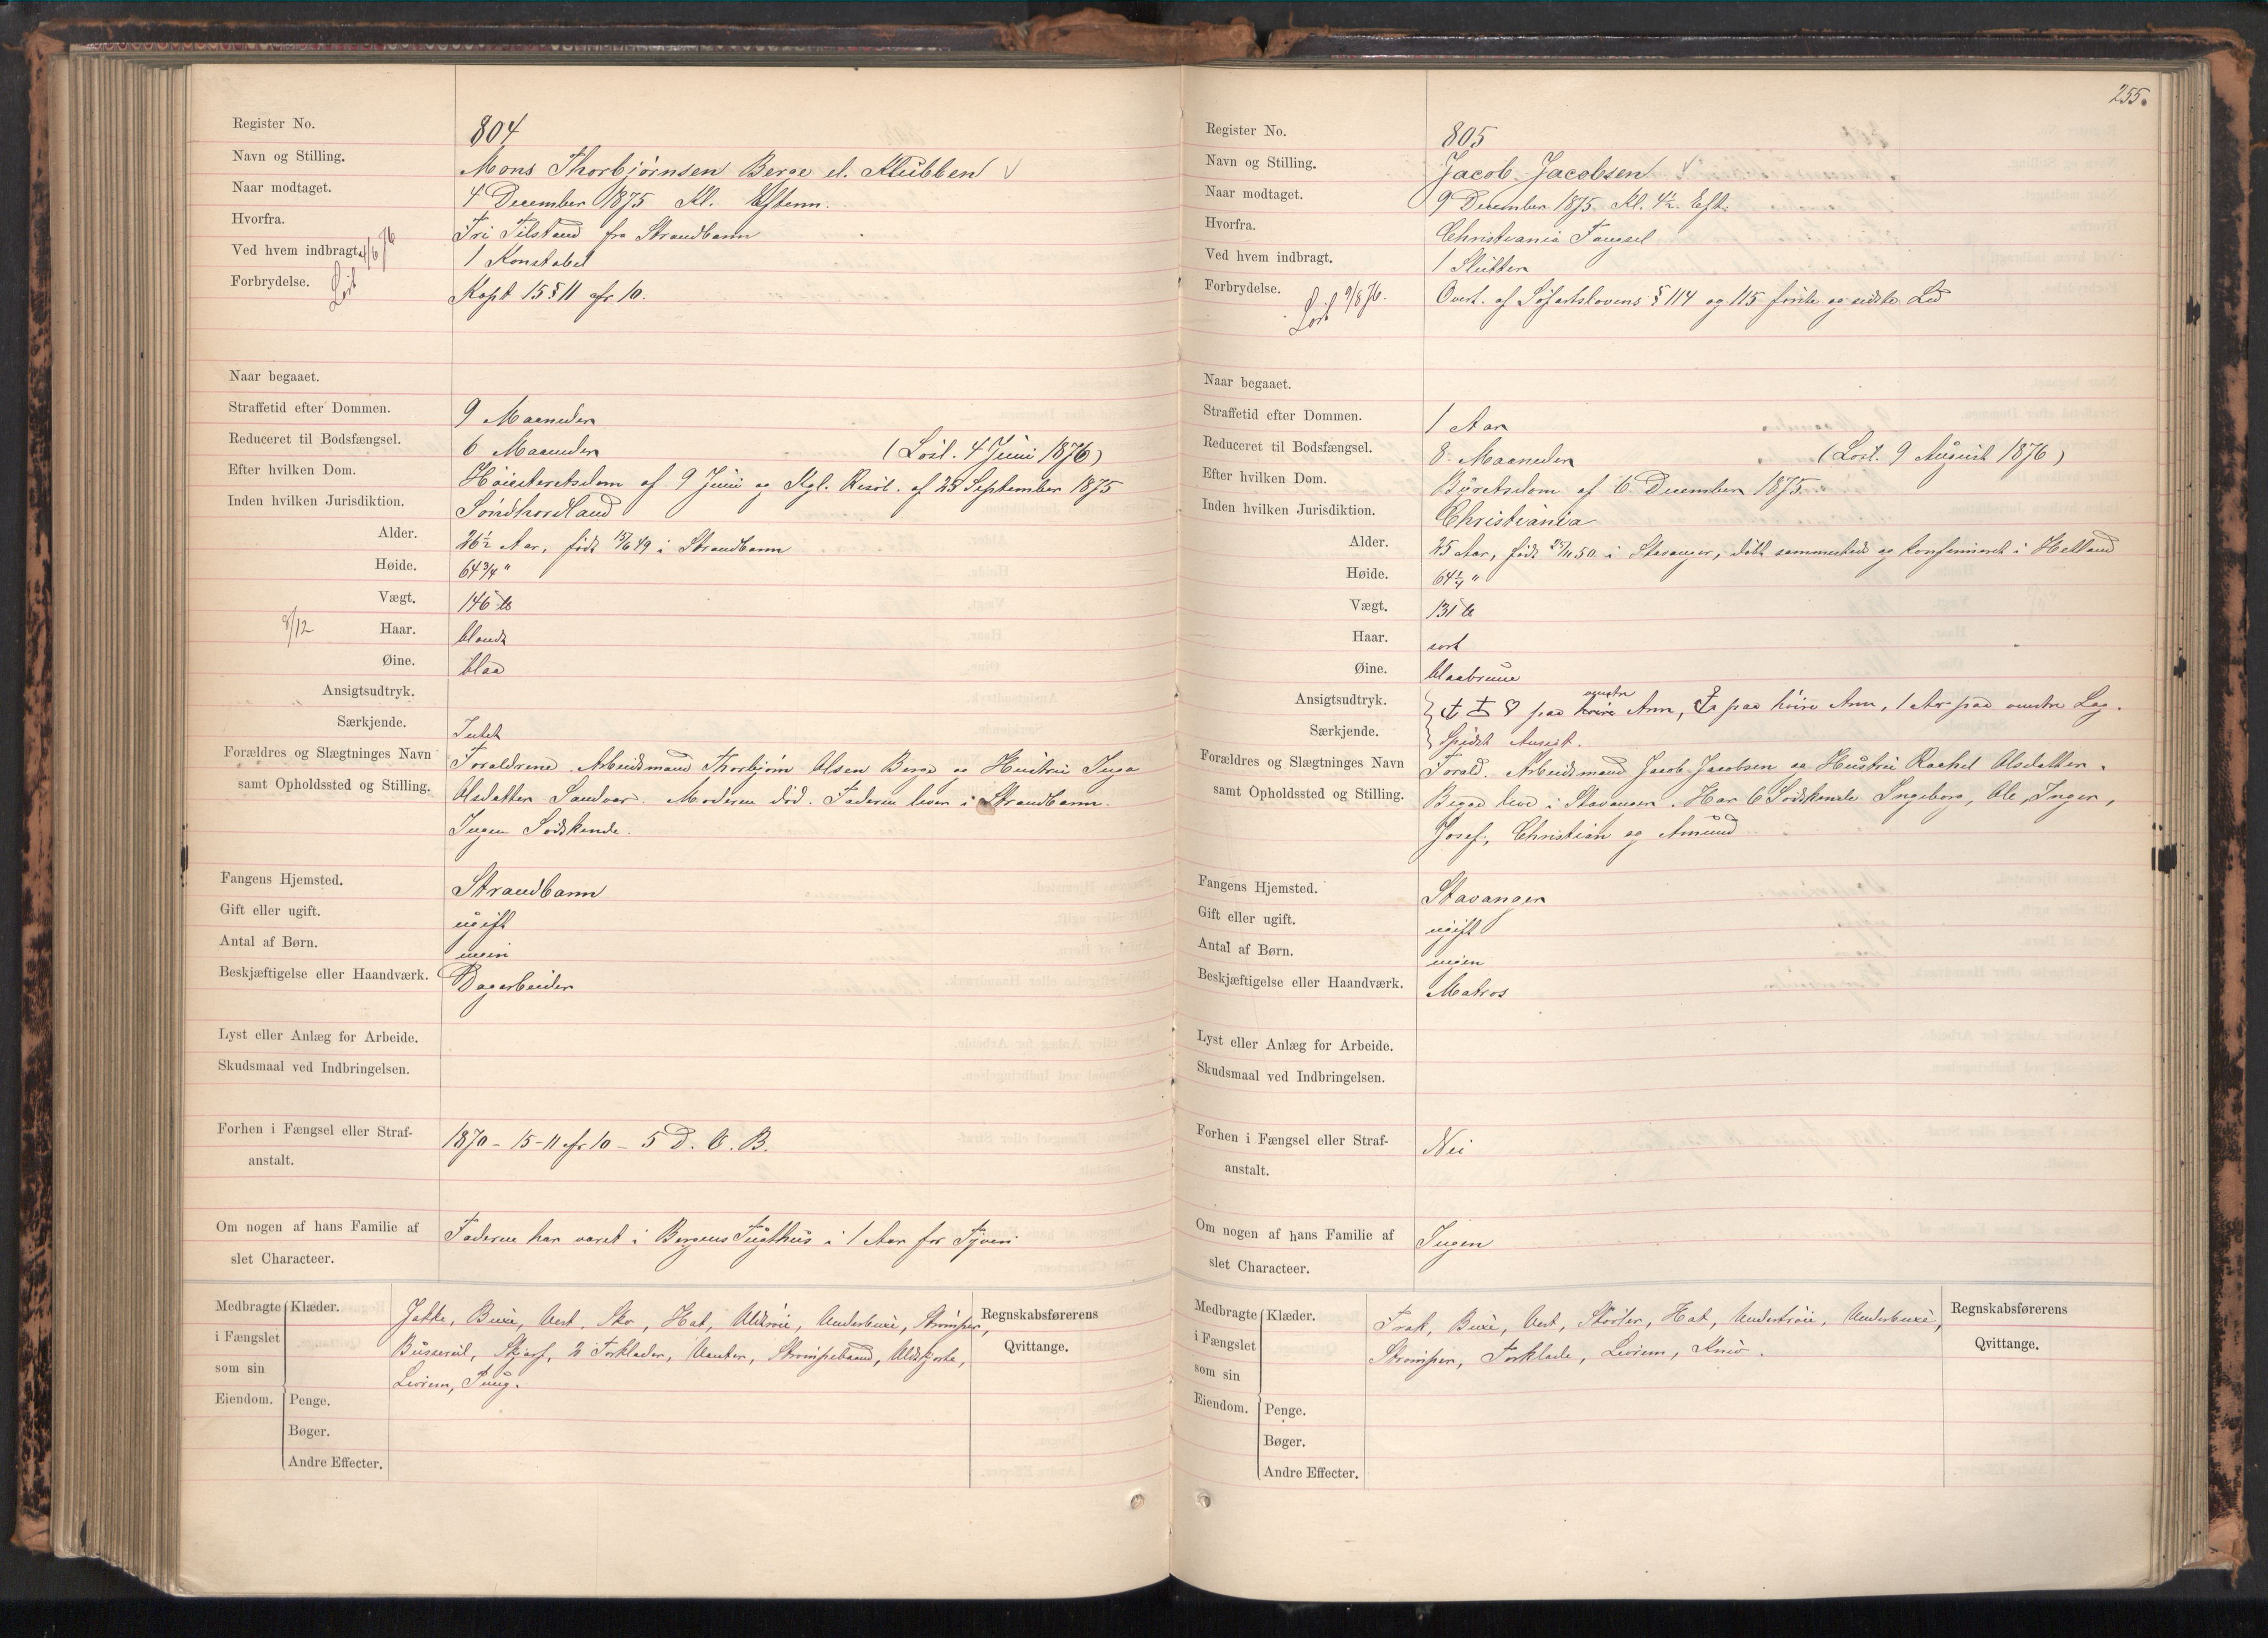 Register No. 804
Navn og Stilling. Mons Thorbjørnsen Berge el. Klubben
Naar modtaget. 4 December 1875 Kl. Efterm.
Hvorfra. Fri Tilstand fra Strandbarm
Ved hvem indbragt. 1 Konstabel
4/6 76
Løsl
Forbrydelse. Kapt 15 § 11 cfr 10.
Naar begaaet.
Straffetid efter Dommen. 9 Maaneder
Reduceret til Bodsfængsel. 6 Maaneder (Løsl. 4 Juni 1876)
Efter hvilken Dom. Høiesteretsdom af 9 Juni og Kgl. Resol. af 25 September 1875
Inden hvilken Jurisdiktion. Søndhordland
Alder. 26½ Aar, født 13/6 49 i Strandbarm
Høide. 64 3/4 "
Vægt. 146 ℔
8/12
Haar. blondt
Øine. blaa
Ansigtsudtryk.
Særkjende. Intet
Forældres og Slægtninges Navn Forældrene Arbeidsmand Thorbjørn Olsen Berge og Hustru Inga
samt Opholdssted og Stilling. Olsdatter Sandven. Moderen død. Faderen lever i Strandbarm.
Ingen Sødskende.
Fangens Hjemsted. Strandbarm
Gift eller ugift. ugift
Antal af Børn. ingen
Beskjæftigelse eller Haandværk. Dagarbeider
Lyst eller Anlæg for Arbeide.
Skudsmaal ved Indbringelsen.
Forhen i Fængsel eller Straf- 1870 - 15 - 11 cfr 10 - 5 D. V. B.
anstalt.
Om nogen af hans Familie af Faderen har været i Bergens Tugthus i 1 Aar for Tyveri
slet Characteer.
Medbragte Klæder. Jakke, Buxe, Vest, Sko, Hat, Uldtrøie, Underbuxe, Strømper, Regnskabsførerens
i Fængslet Busserul, Skjerf, 2 Forklæder, Vanter, Strømpebaand, Uldskjorte, Qvittange.
som sin Livrem, Pung.
Eiendom. Penge.
Bøger.
Andre Effecter.
255.
Register No. 805
Navn og Stilling. Jacob Jacobsen
Naar modtaget. 9 December 1875. Kl. 4½ Eft.
Hvorfra. Christiania Fængsel
Ved hvem indbragt. 1 Slutter
Forbrydelse. Overt. af Søfartslovens § 114 og 115 første og sidste Led
Løsl 9/8 76.
Naar begaaet.
Straffetid efter Dommen. 1 Aar
Reduceret til Bodsfængsel. 8 Maaneder (Løsl. 9 August 1876)
Efter hvilken Dom. Byretsdom af 6 December 1875.
Inden hvilken Jurisdiktion. Christiania
Alder. 25 Aar, født 25/11 50 i Stavanger, døbt sammesteds og konfirmeret i Hetland
Høide. 64¼ "
Vægt. 131 ℔
Haar. sort
Øine. blaabrune
venstre
Ansigtsudtryk. ⚓ ♡ paa høire Arm, ⚓ paa høire Arm, 1 Ar paa venstre Læg.
Særkjende. Spidst Ansigt.
Forældres og Slægtninges Navn Foræld. Arbeidsmand Jacob Jacobsen og Hustru Rachel Olsdatter.
samt Opholdssted og Stilling. Begge leve i Stavanger. Har 6 Sødskende Ingeborg, Ole, Inger,
Josef, Christian og Amund
Fangens Hjemsted. Stavanger
Gift eller ugift. ugift
Antal af Børn. ingen
Beskjæftigelse eller Haandværk. Matros
Lyst eller Anlæg for Arbeide.
Skudsmaal ved Indbringelsen.
Forhen i Fængsel eller Straf- Nei
anstalt.
Om nogen af hans Familie af Ingen
slet Characteer.
Medbragte Klæder. Frak, Buxe, Vest, Støvler, Hat, Undertrøie, Underbuxe, Regnskabsførerens
i Fængslet Strømper, Forklæde, Livrem, Kniv. Qvittange.
som sin
Eiendom. Penge.
Bøger.
Andre Effecter.